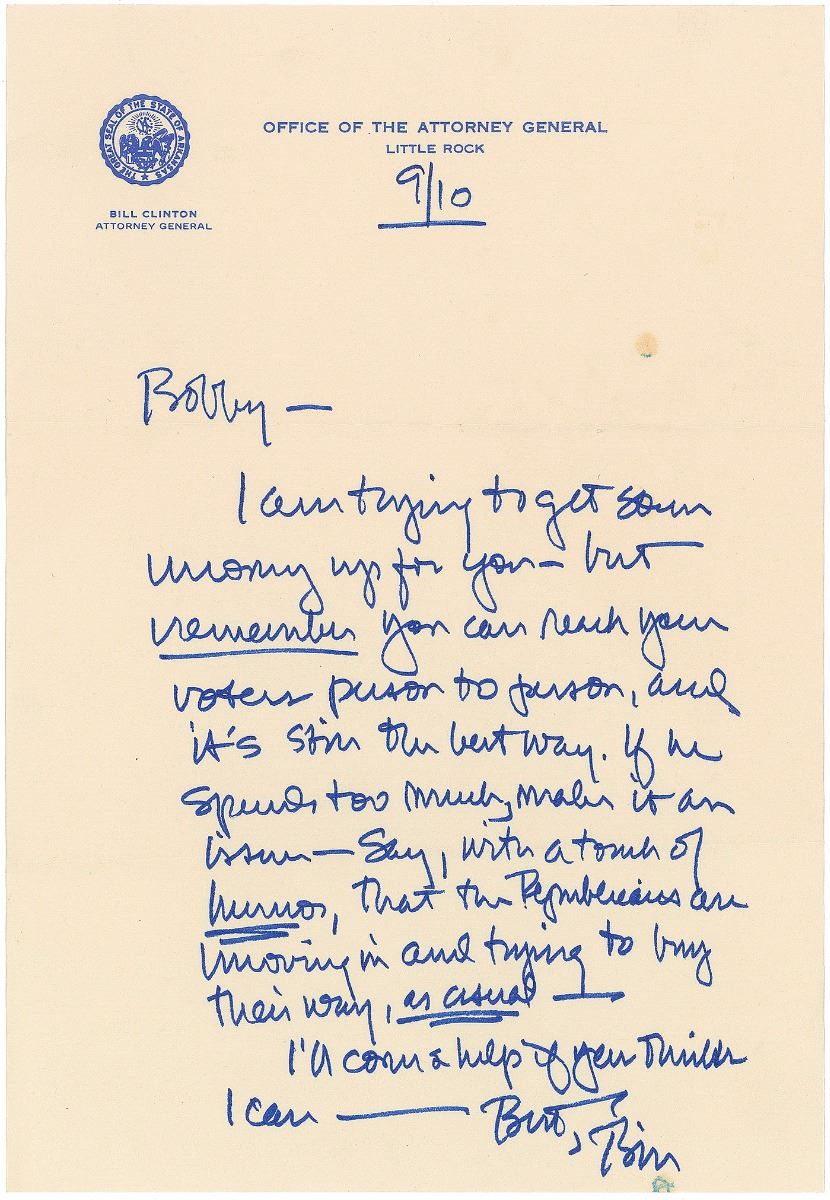 THE GREAT SEAL OF THE STATE OF ARKANSAS
OFFICE OF THE ATTORNEY GENERAL
LITTLE ROCK
9/10
BILL CLINTON
ATTORNEY GENERAL
Bobby —
I am trying to get some
money up for you — but
remember you can reach your
voters person to person, and
it's still the best way. If he
spends too much, make it an
issue — Say, with a touch of
humor, that the Republicans are
moving in and trying to buy
their way, as usual —
I'll come & help if you think
I can — Best, Bill